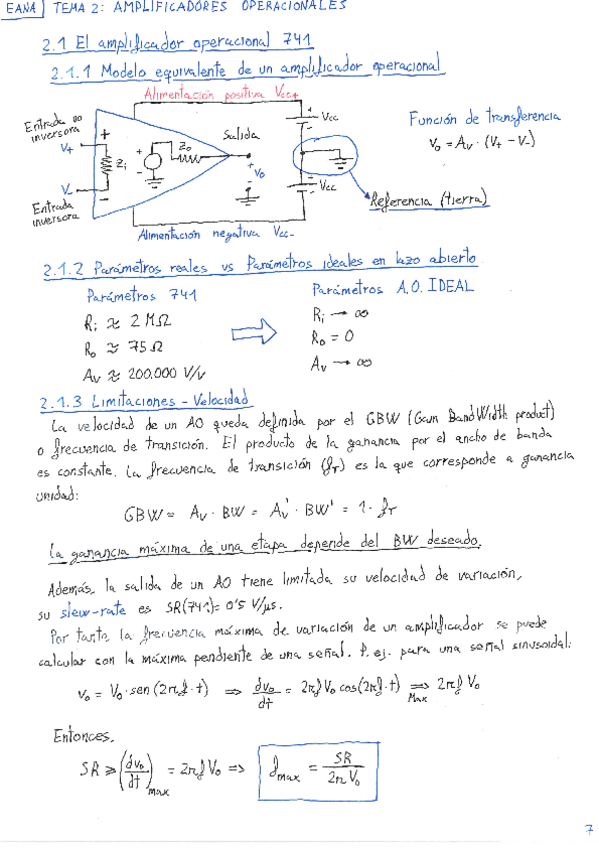 EANA TEMA 2: AMPLIFICADORES OPERACIONALES
2.1 El amplificador operacional 741
2.1.1 Modelo equivalente de un amplificador operacional
Alimentación positiva Vcc+
Entrada no inversora
V+
+
Zi
-
V-
Entrada inversora
+
-
Zo
Salida
+
Vo
-
+
Vcc
-
+
Vcc
-
Alimentación negativa Vcc-
Referencia (tierra)
Función de transferencia
Vo = Av · (V+ - V-)
2.1.2 Parámetros reales vs Parámetros ideales en lazo abierto
Parámetros 741
Ri ≈ 2 MΩ
Ro ≈ 75 Ω
Av ≈ 200.000 V/V
Parámetros A.O. IDEAL
Ri → ∞
Ro = 0
Av → ∞
2.1.3 Limitaciones - Velocidad
La velocidad de un AO queda definida por el GBW (Gain BandWidth product)
o frecuencia de transición. El producto de la ganancia por el ancho de banda
es constante. La frecuencia de transición (fT) es la que corresponde a ganancia
unidad:
GBW = Av · BW = Av' · BW' = 1 · fT
La ganancia máxima de una etapa depende del BW deseado.
Además, la salida de un AO tiene limitada su velocidad de variación,
su slew-rate es SR(741) = 0'5 V/μs.
Por tanto, la frecuencia máxima de variación de un amplificador se puede
calcular con la máxima pendiente de una señal. P. ej. para una señal sinusoidal:
vo = Vo · sen (2πf · t) ⇒ dvo/dt = 2πf Vo cos(2πf · t) ⇒ Max 2πf Vo
Entonces,
SR ≥ (dvo/dt)max = 2πf Vo ⇒ fmax = SR / 2π Vo
7